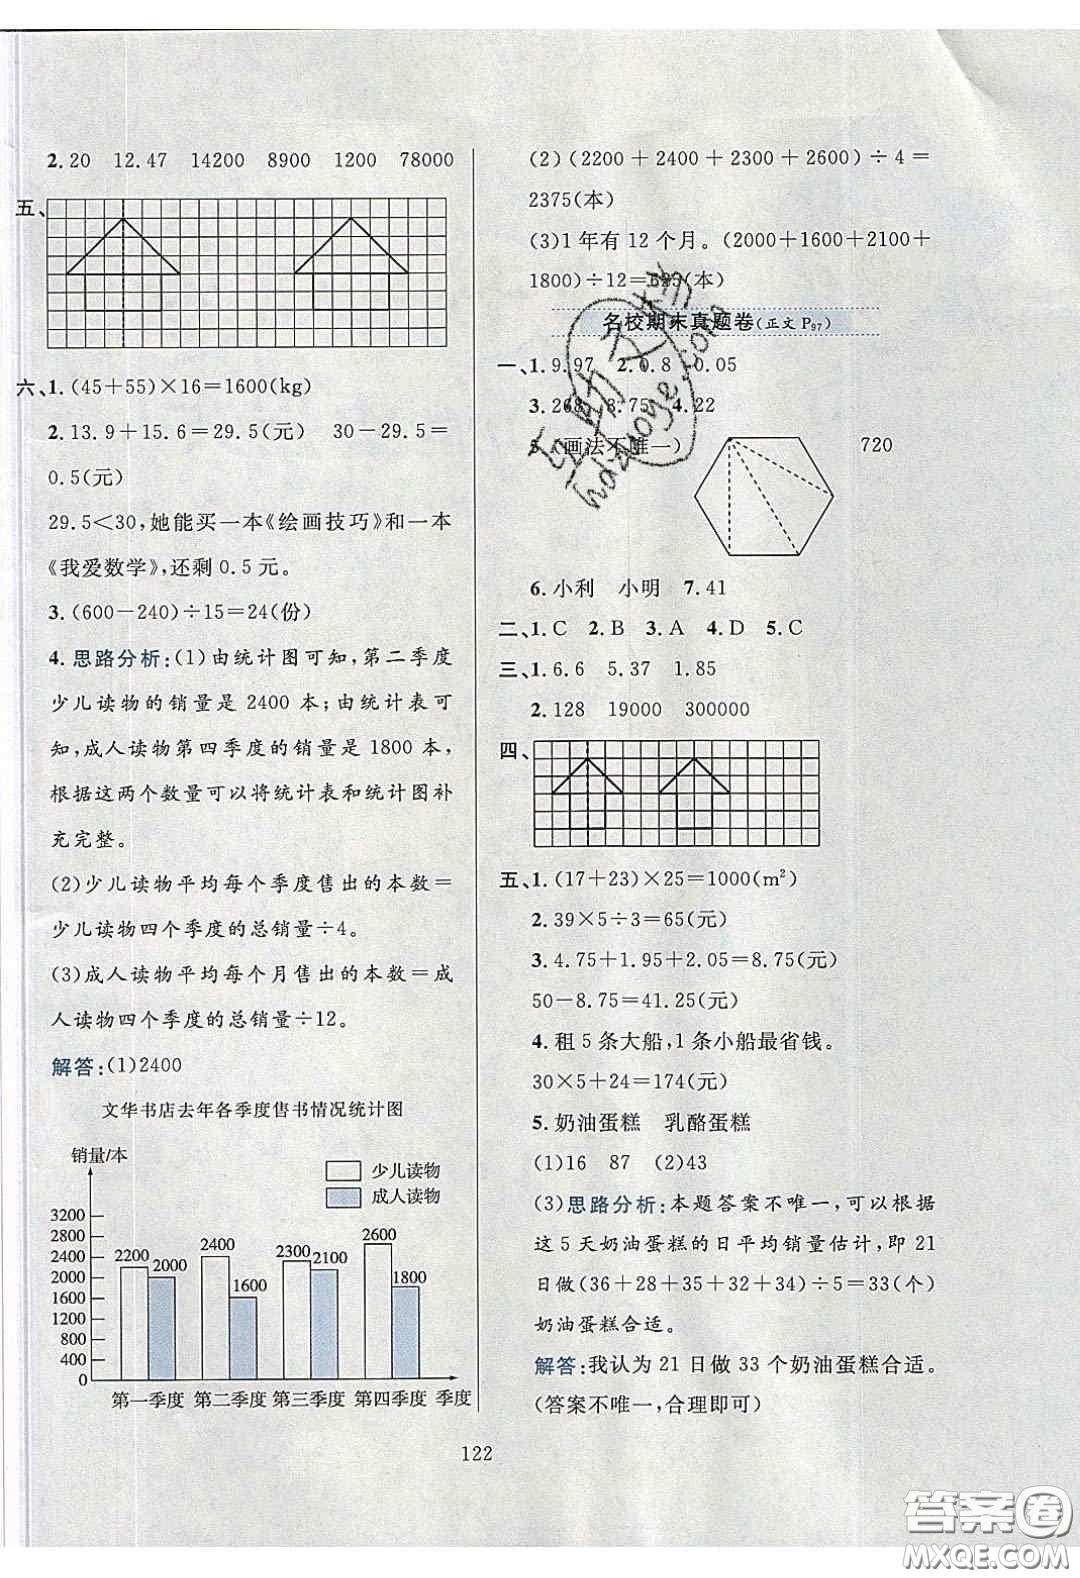 2.20 12.47 14200 8900 1200 78000
五、
六、1.(45+55)×16=1600(kg)
2.13.9+15.6=29.5(元) 30-29.5=
0.5(元)
29.5<30,她能买一本《绘画技巧》和一本
《我爱数学》,还剩0.5元。
3.(600-240)÷15=24(份)
4.思路分析:(1)由统计图可知,第二季度
少儿读物的销量是2400本;由统计表可
知,成人读物第四季度的销量是1800本,
根据这两个数量可以将统计表和统计图补
充完整。
(2)少儿读物平均每个季度售出的本数=
少儿读物四个季度的总销量÷4。
(3)成人读物平均每个月售出的本数=成
人读物四个季度的总销量÷12。
解答:(1)2400
文华书店去年各季度售书情况统计图
销量/本
少儿读物
成人读物
3200
2800
2400
2000
1600
1200
800
400
0
2200 2000
2400 1600
2300 2100
2600 1800
第一季度 第二季度 第三季度 第四季度 季度
(2)(2200+2400+2300+2600)÷4=
2375(本)
(3)1年有12个月。(2000+1600+2100+
1800)÷12=625(本)
名校期末真题卷(正文 P97)
一、1.9.97 2.0.8 0.05
3.268 8.75 4.22
5.(画法不唯一) 720
6.小利 小明 7.41
二、1.C 2.B 3.A 4.D 5.C
三、1.6.6 5.37 1.85
2.128 19000 300000
四、
五、1.(17+23)×25=1000(m²)
2.39×5÷3=65(元)
3.4.75+1.95+2.05=8.75(元)
50-8.75=41.25(元)
4.租5条大船,1条小船最省钱。
30×5+24=174(元)
5.奶油蛋糕 乳酪蛋糕
(1)16 87 (2)43
(3)思路分析:本题答案不唯一,可以根据
这5天奶油蛋糕的日平均销量估计,即21
日做(36+28+35+32+34)÷5=33(个)
奶油蛋糕合适。
解答:我认为21日做33个奶油蛋糕合适。
(答案不唯一,合理即可)
122
答案圈
MXQE.COM